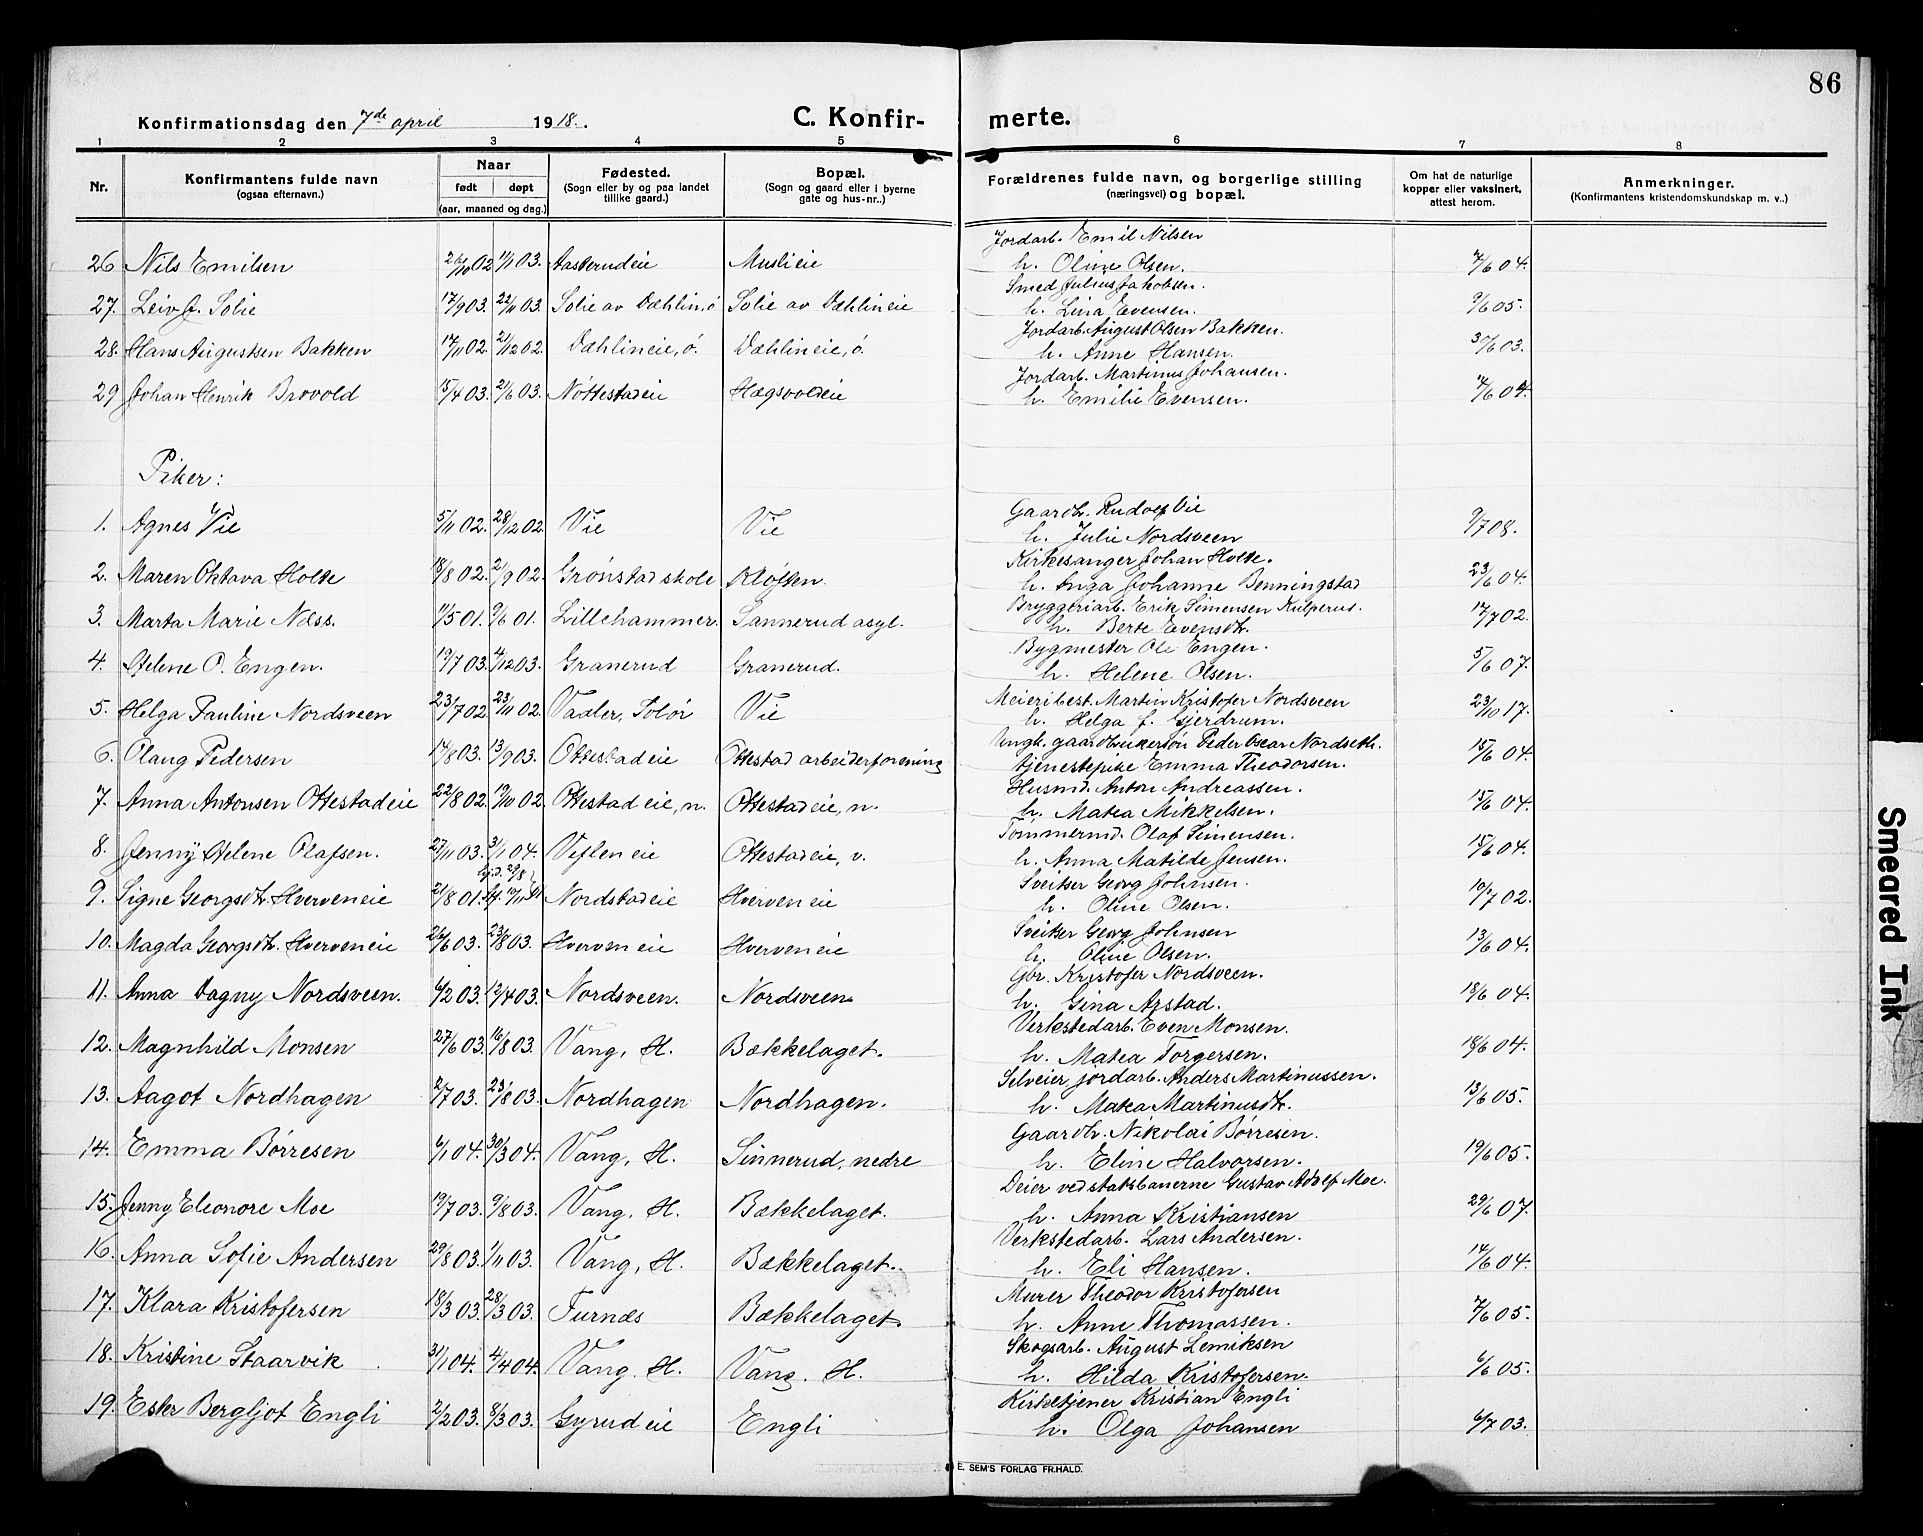 86
Konfirmationsdag den 7de april 1918.
C. Konfirmerte.
1 2 3 4 5 6 7 8
Nr. Konfirmantens fulde navn (ogsaa efternavn.) Naar født døpt (aar, maaned og dag.) Fødested. (Sogn eller by og paa landet tillike gaard.) Bopæl. (Sogn og gaard eller i byerne gate og hus-nr..) Forældrenes fulde navn, og borgerlige stilling (næringsvei) og bopæl. Om hat de naturlige kopper eller vaksinert, attest herom. Anmerkninger. (Konfirmantens kristendomskundskap m. v..)
Jordarb. Emil Nilsen
26 Nils Emilsen 26/10 02 1/1 03. Aasterudeie Muslieie h. Oline Olsen. 7/6 04.
Smed Julius Jakobsen.
27. Leiv J. Solie 17/9 03. 22/11 03. Solie av Dæhlin, ø Solie av Dæhlineie h. Lina Evensen. 9/6 05.
Jordarb. August Olsen Bakken.
28. Hans Augustsen Bakken 17/11 02. 21/12 02. Dæhlineie, ø. Dæhlineie, ø. h. Anne Hansen. 30/6 03.
Jordarb. Martinus Johansen.
29 Johan Henrik Brovold 15/4 03. 21/6 03. Nøttestadeie Hægsvoldeie h. Emilie Evensen. 17/6 04.
Piker:
Gaardbr. Rudolf Vie
1. Agnes Vie 5/11 02. 28/12 02. Vie Vie h. Julie Nordsveen 9/7 08.
Kirkesanger Johan Holte.
2. Maren Oktava Holte 18/8 02. 21/9 02. Grønstad skole Kløften. h. Inga Johanne Benningstad 23/6 04.
Bryggeriarb. Erik Simensen Kulperus.
3. Marta Marie Næss. 11/5 01. 9/6 01. Lillehammer. Sannerud asyl. h. Berte Evensdtr. 17/7 02.
Bygmester Ole Engen.
4. Helene O. Engen. 19/7 03. 4/12 03. Granerud Granerud. h. Helene Olsen. 5/6 07.
Meieribest. Martin Kristofer Nordsveen
5. Helga Pauline Nordsveen 23/7 02. 23/11 02. Vaaler, Solør Vie h. Helga f. Gjerdrum. 23/10 17.
Ungk. gaardbrukersøn Peder Oscar Nordseth.
6. Olaug Pedersen 14/8 03. 13/9 03. Ottestadeie Ottestad arbeiderforening tjenestepike Emma Theodorsen. 15/6 04.
Husmd. Anton Andreassen.
7. Anna Antonsen Ottestadeie 22/8 02. 19/10 02. Ottestadeie, n. Ottestadeie, n. h. Matea Mikkelsen. 15/6 04.
Tømmermd. Olaf Simensen.
8. Jenny Helene Olafsen. 27/11 03. 3/1 04. Vejleneie Ottestadeie, v. h. Anna Matilde Jensen. 15/6 04.
Sveitser Georg Johnsen.
9. Signe Georgsdtr. Hverveneie 21/8 01. Nordstadeie Hverveneie h. Oline Olsen. 10/7 02.
Sveitser Georg Johnsen
10. Magda Georgsdtr. Hverveneie 26/6 03. 23/8 03. Hverveneie Hverveneie h. Oline Olsen. 13/6 04.
Gbr. Kristofer Nordsveen.
11. Anna Dagny Nordsveen. 6/2 03. 12/4 03. Nordsveen. Nordsveen h. Gina Arstad. 18/6 04.
Verkstedarb. Even Monsen.
12. Magnhild Monsen 27/6 03. 16/8 03. Vang, H. Bækkelaget. h. Matea Torgersen. 18/6 04.
Selveier, jordarb. Anders Martinussen.
13. Aagot Nordhagen 2/7 03. 23/8 03. Nordhagen Nordhagen. h. Matea Martinusdtr. 13/6 05.
Gaardbr. Nikolai Børresen.
14. Emma Børresen 6/1 04. 30/3 04. Vang, H. Sinnerud, nedre h. Eline Halvorsen. 19/6 05.
Deier ved statsbanerne Gustav Adolf Moe.
15. Jenny Eleonore Moe 19/7 03. 9/8 03. Vang, H. Bækkelaget. h. Anna Kristiansen 29/6 07.
Verkstedarb. Lars Andersen.
16. Anna Sofie Andersen 29/8 03. 1/11 03. Vang, H. Bækkelaget. h. Eli Hansen. 14/6 04.
Murer Theodor Kristofersen
17. Klara Kristofersen 18/3 03. 28/3 03. Furnæs Bækkelaget. h. Anne Thomassen. 7/6 05.
Skogsarb. August Lemiksen
18. Kristine Staarvik 31/1 04. 4/4 04. Vang. H. Vang. H. h. Hilda Kristofersen. 6/6 05.
Kirketjener Kristian Engli
19. Ester Bergljot Engli 2/2 03. 8/3 03. Gyrudeie Engli h. Olga Johansen 6/7 03.
E. SEM'S FORLAG FR.HALD.
Smeared Ink